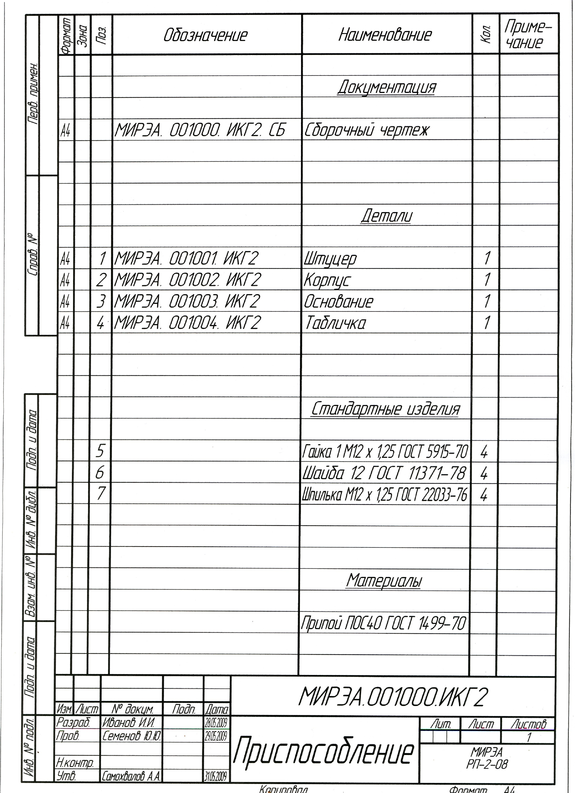 Формат Зона Поз. Обозначение Наименование Кол. Приме-
чание
Перв. примен.
Документация
А4 МИРЭА. 001000. ИКГ2. СБ Сборочный чертеж
Справ. №
Детали
А4 1 МИРЭА. 001001. ИКГ2 Штуцер 1
А4 2 МИРЭА. 001002. ИКГ2 Корпус 1
А4 3 МИРЭА. 001003. ИКГ2 Основание 1
А4 4 МИРЭА. 001004. ИКГ2 Табличка 1
Стандартные изделия
Подп. и дата
5 Гайка 1 М12 х 1,25 ГОСТ 5915-70 4
6 Шайба 12 ГОСТ 11371-78 4
7 Шпилька М12 х 1,25 ГОСТ 22033-76 4
Инв. № дубл.
Взам. инв. №
Материалы
Припой ПОС40 ГОСТ 1499-70
Подп. и дата
МИРЭА.001000.ИКГ2
Изм Лист № докум. Подп. Дата
Разраб. Иванов И.И. 28.05.2009
Пров. Семенов Ю.Ю. 29.05.2009
Н.контр.
Утв. Самохвалов А.А. 31.05.2009
Инв. № подл.
Приспособление
Лит. Лист Листов
1
МИРЭА
РП-2-08
Копировал Формат А4